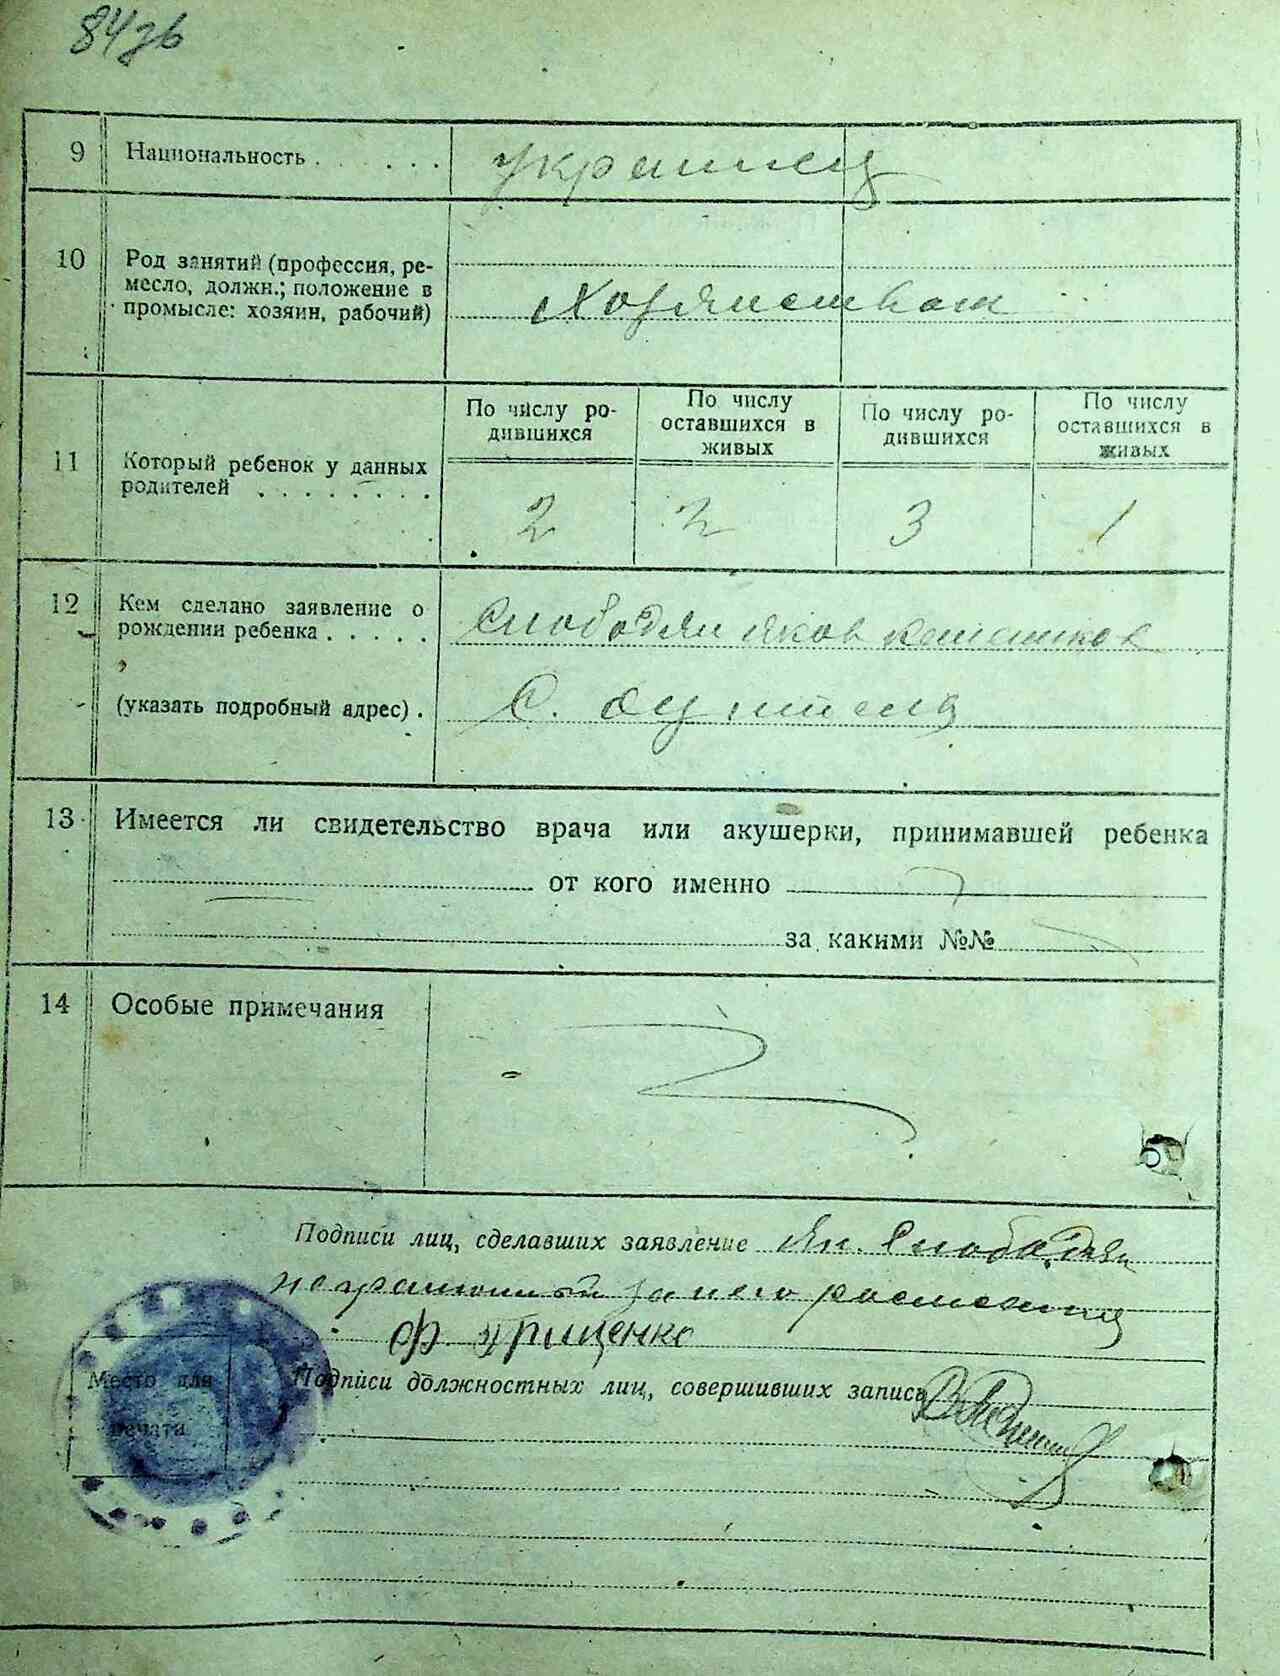 9 Национальность . . . . . украинец
10 Род занятий (профессия, ре-
месло, должн.; положение в
промысле: хозяин, рабочий)
По числу ро-
дившихся
По числу
оставшихся в
живых
По числу ро-
дившихся
По числу
оставшихся в
живых
11 Который ребенок у данных
родителей . . . . . . . .
2 2 3 1
12 Кем сделано заявление о
рождении ребенка . . . . .
Слободян Яков
(указать подробный адрес) .
С.
13 Имеется ли свидетельство врача или акушерки, принимавшей ребенка
от кого именно
за какими №№
14 Особые примечания
Подписи лиц, сделавших заявление Як. Слободян
неграмотный за него
Ф. Гриценко
Место для
печати
Подписи должностных лиц, совершивших запись